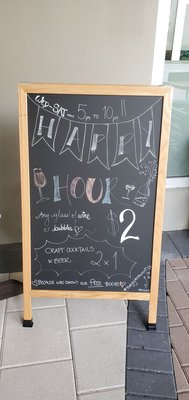 WED-SAT 5pm TO 10pm!!
HAPPY
HOUR
Any glass of wine
or bubbles $2
CRAFT COCKTAILS
& BEER 2x1